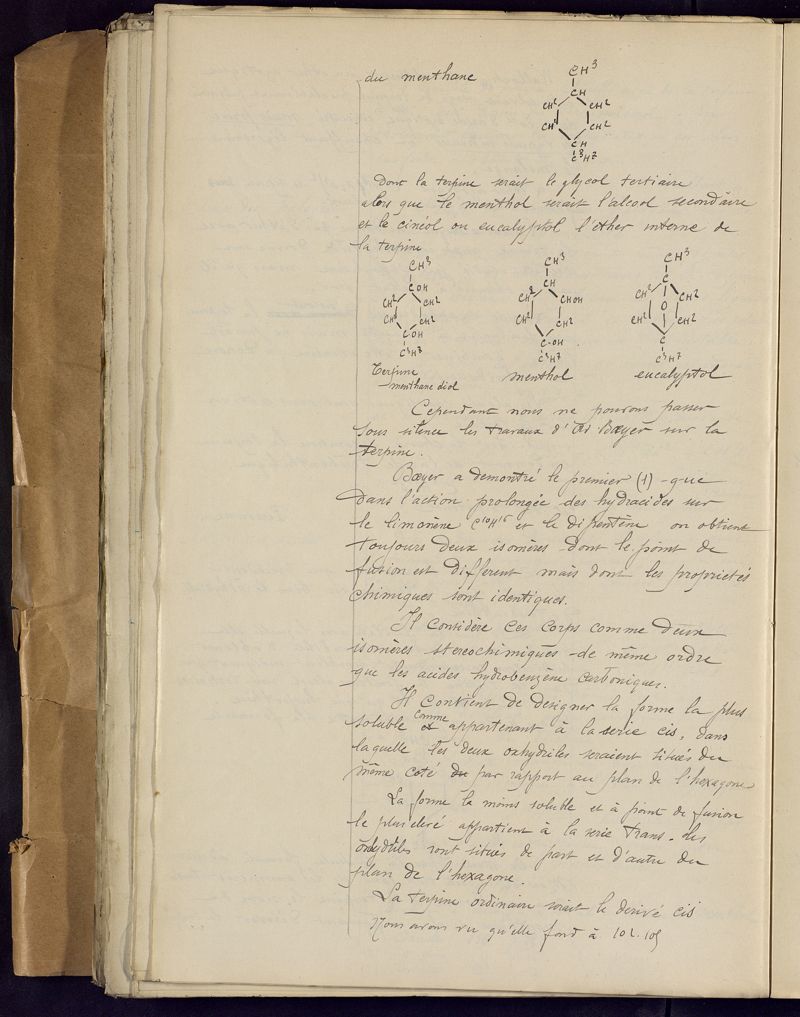 du menthane
CH3
CH
CH2 CH2
CH2 CH2
CH
C3H7
dont la terpine serait le glycol tertiaire
alors que le menthol serait l'alcool secondaire
et le cinéol ou eucalyptol l'ether interne de
la terpine
CH3 CH3 CH3
COH CH C
CH2 CH2 CH2 CHOH CH2 O CH2
CH2 CH2 CH2 CH2 CH2 CH2
COH C-OH C
C3H7 C3H7 C3H7
Terpine menthol eucalyptol
menthane diol
Cependant nous ne pouvons passer
sous silence les travaux d'Ad Bæyer sur la
terpine.
Bæyer a demontré le premier (1) que
dans l'action prolongée des hydracides sur
le limonène C10H16 et le dipentène on obtient
toujours deux isomères dont le point de
fusion est different mais dont les proprietés
chimiques sont identiques.
Il considère ces corps comme deux
isomères stereochimiques de même ordre
que les acides hydrobenzène carboniques.
Il convient de designer la forme la plus
soluble comme appartenant à la serie cis, dans
laquelle les deux oxhydriles seraient situés du
même coté du par rapport au plan de l'hexagone
La forme la moins soluble et à point de fusion
le plus elevé appartient à la serie trans. les
oxhydriles sont situés de part et d'autre du
plan de l'hexagone.
La terpine ordinaire serait le derivé cis
Nous avons vu qu'elle fond à 102.105